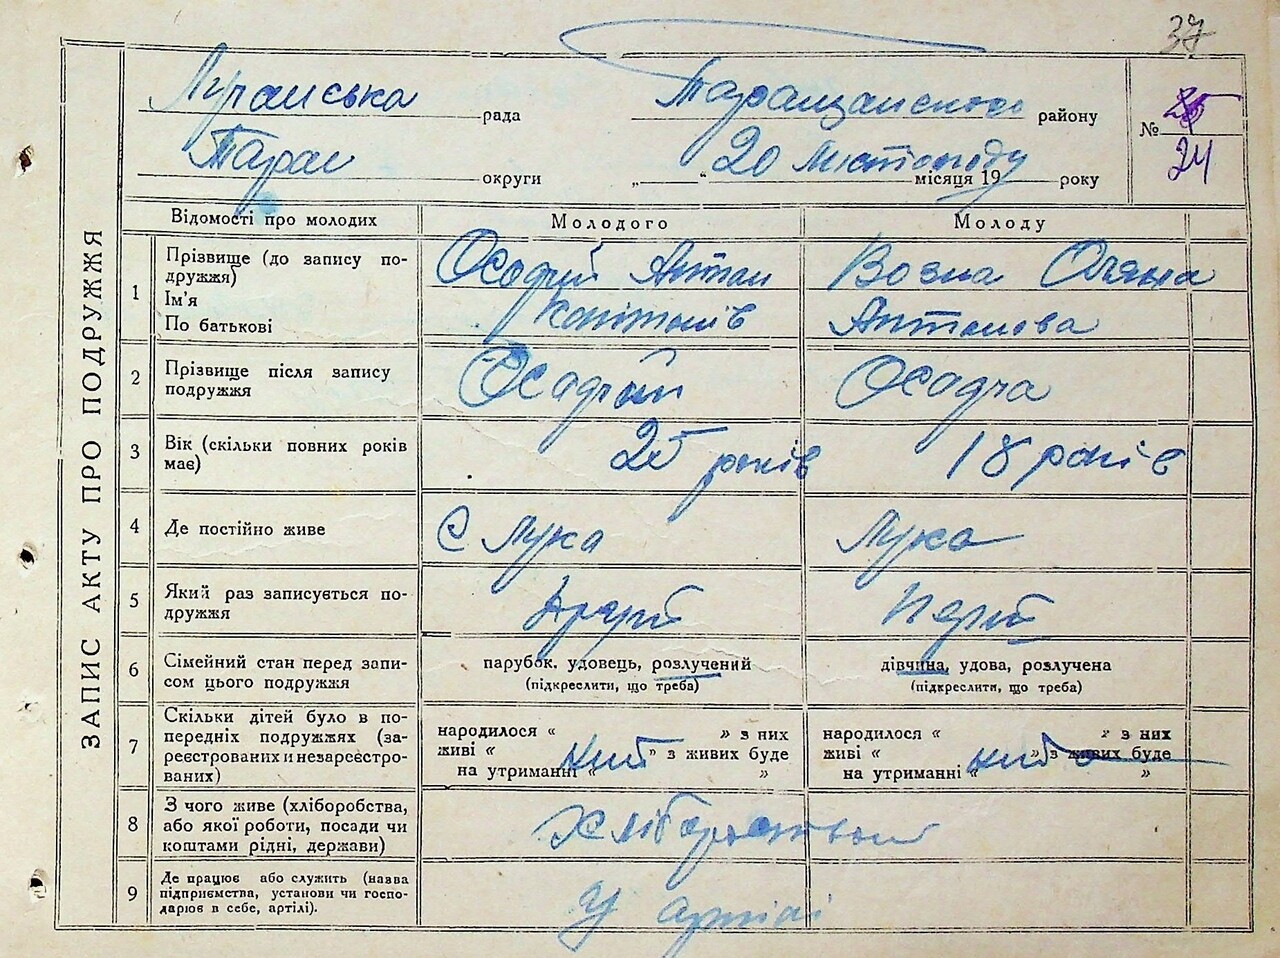 37
Лучанська рада Таращанського району
№ 24
Таращ округи „ “ 20 Листопаду місяця 19 року
ЗАПИС АКТУ ПРО ПОДРУЖЖЯ
Відомості про молодих Молодого Молоду
1 Прізвище (до запису по-
дружжя)
Ім'я
По батькові
Осадчий Антон
Возна Оляна
Антонова
2 Прізвище після запису
подружжя
Осадчий Осадча
3 Вік (скільки повних років
має)
25 років 18 років
4 Де постійно живе С Лука Лука
5 Який раз записується по-
дружжя
другий перший
6 Сімейний стан перед запи-
сом цього подружжя
парубок, удовець, розлучений
(підкреслити, що треба)
дівчина, удова, розлучена
(підкреслити, що треба)
7 Скільки дітей було в по-
передніх подружжях (за-
реєстрованих и незареєстро-
ваних)
народилося “ » з них
живі “ » з живих буде
на утриманні “ »
народилося “ » з них
живі “ » з живих буде
на утриманні “ »
8 З чого живе (хліборобства,
або якої роботи, посади чи
коштами рідні, держави)
9 Де працює або служить (назва
підприємства, установи чи госпо-
дарює в себе, артілі).
У артілі